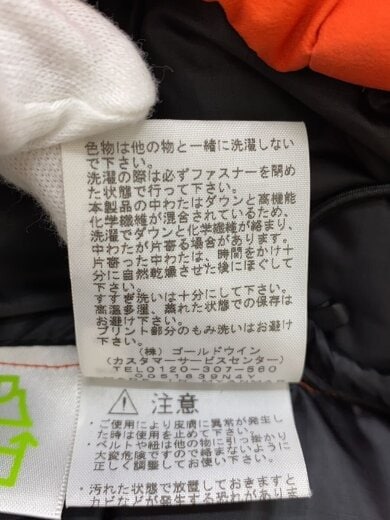 色物は他の物と一緒に洗濯しない
で下さい。
洗濯の際は必ずファスナーを閉め
た状態で行って下さい。
本製品の中わたはダウンと高機能
化学繊維が混合されているため、
洗濯でダウンと化学繊維が絡まり、
中わたが片寄る場合があります。
片寄った中わたは、時間をかけて
十分に自然乾燥させた後にほぐして
下さい。
すすぎ洗いは十分にして下さい。
高温多湿、蒸れた状態での保存は
お避け下さい。
プリント部分のもみ洗いはお避け
下さい。
(株) ゴールドウイン
(カスタマーサービスセンター)
TEL0120-307-560
⚠ 注意
・ご使用により皮膚に異常が発生し
た時は使用を止めて下さい。
・ベルトや紐は他の物に引っ掛かり
大変危険ですので絡まないように
正しく調整してお使い下さい。
・汚れた状態で放置しておきますと
カビなどが発生する恐れがありま